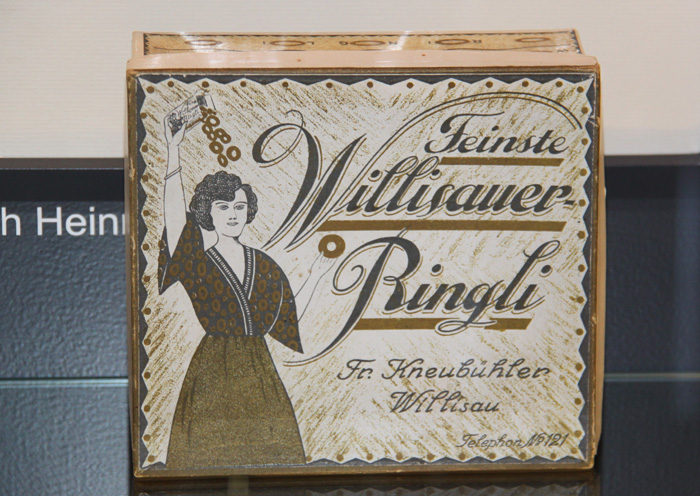 Feinste
Willisauer-
Ringli
Fr. Kneubühler
Willisau
Telephon No 121
h Heinr